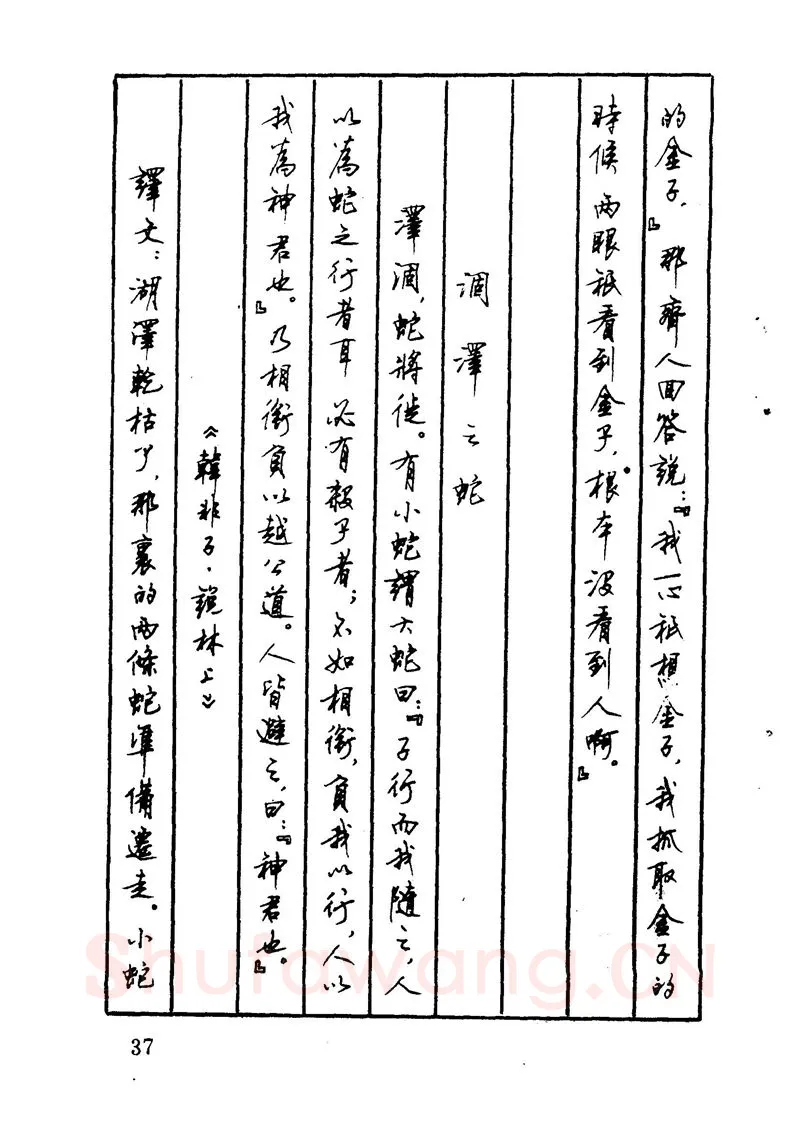 的金子。』那齊人回答說：『我一心祇想金子，我抓取金子的
時候兩眼祇看到金子，根本沒看到人啊。』
涸澤之蛇
澤涸，蛇將徙。有小蛇謂大蛇曰：『子行而我隨之，人
以為蛇之行者耳必有殺子者；不如相銜，負我以行，人以
我為神君也。』乃相銜負以越公道。人皆避之，曰：『神君也。』
《韓非子·說林上》
譯文：湖澤乾枯了，那裏的兩條蛇準備遷走。小蛇
37
Shufawang.CN